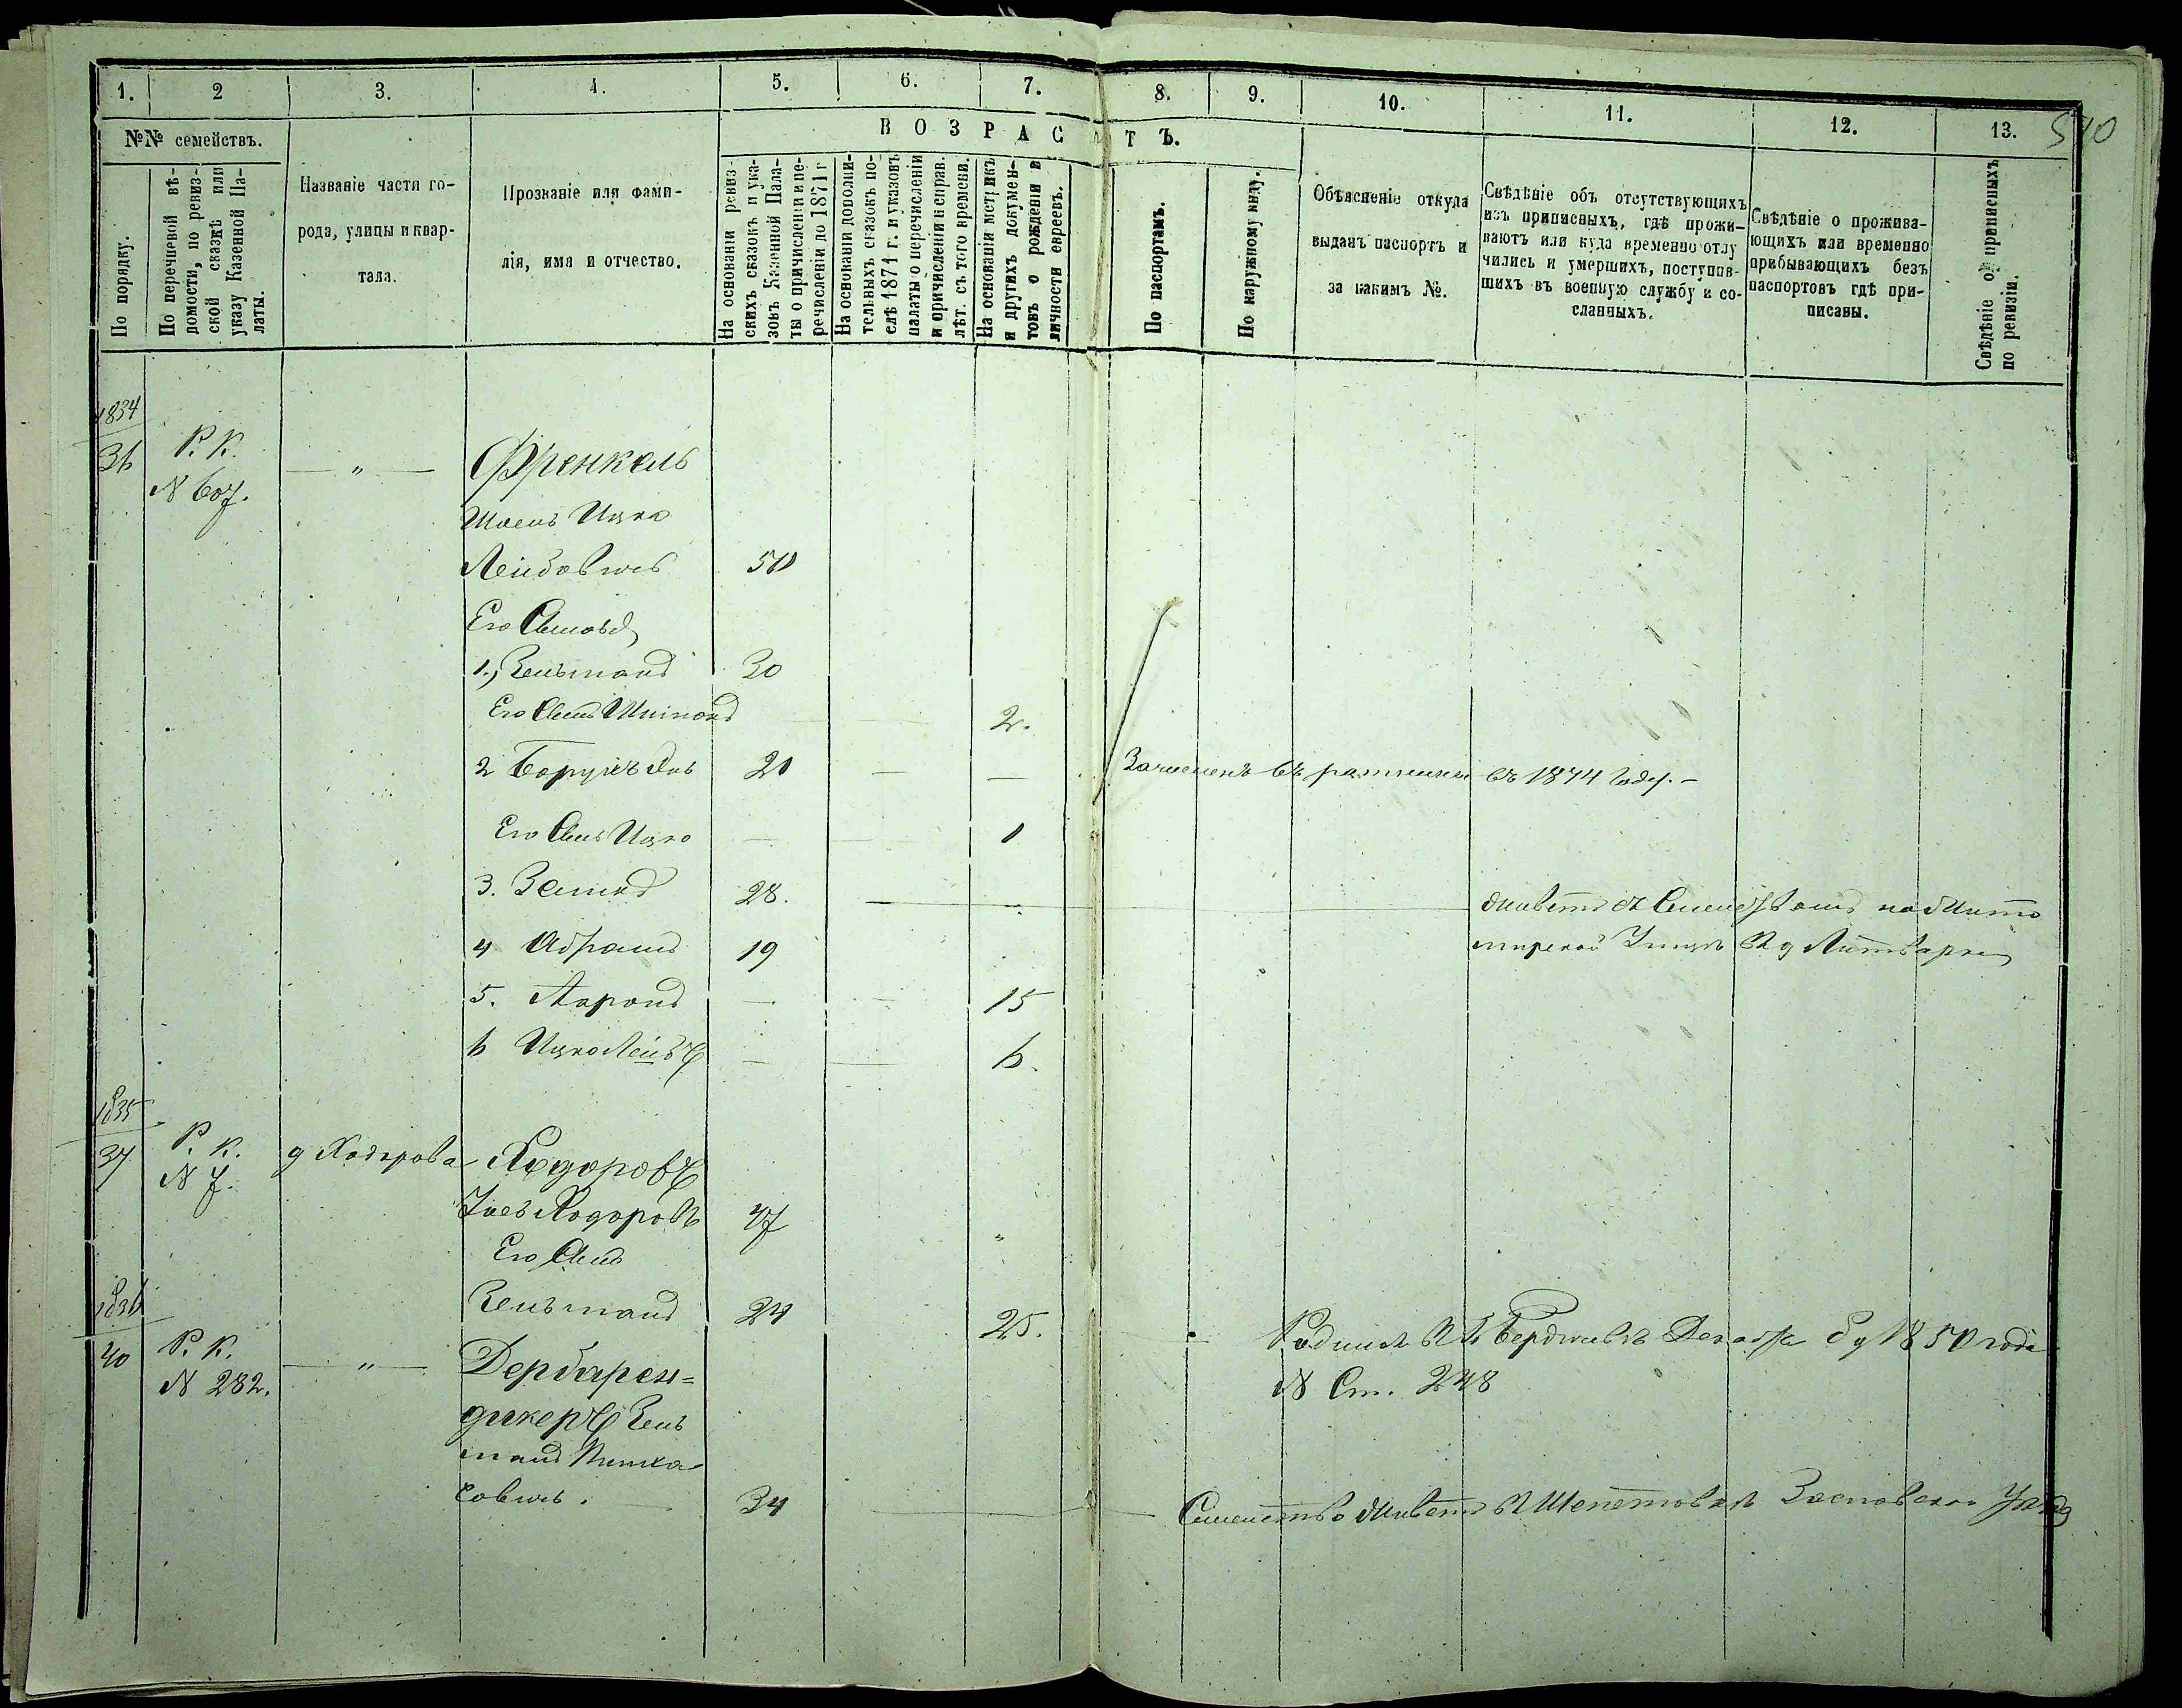 540
1. 2 3. 4. 5. 6. 7. 8. 9. 10. 11. 12. 13.
№№ семействъ.
По порядку.
По перечневой вѣ-
домости, по ревиз-
ской сказкѣ или
указу Казенной Па-
латы.
Названіе части го-
рода, улицы и квар-
тала.
Прозваніе или фами-
лія, имя и отчество.
ВОЗРАСТЪ.
На основаніи ревиз-
скихъ сказокъ и ука-
зовъ Казенной Пала-
ты о причисленіи и пе-
речисленіи до 1871 г
На основаніи дополни-
тельныхъ сказокъ по-
слѣ 1871 г. и указовъ
палаты о перечисленіи
и причисленіи и справ.
лѣт. съ того времени.
На основаніи метрикъ
и другихъ докумен-
товъ о рожденіи и
личности евреевъ.
По паспортамъ.
По наружному виду.
Объясненіе откуда
выданъ паспортъ и
за какимъ №.
Свѣдѣніе объ отсутствующихъ
изъ приписныхъ, гдѣ прожи-
ваютъ или куда временно отлу
чились и умершихъ, поступив-
шихъ въ военную службу и со-
сланныхъ.
Свѣдѣніе о прожива-
ющихъ или временно
прибывающихъ безъ
паспортовъ гдѣ при-
писаны.
Свѣдѣніе о приписныхъ
по ревизіи.
1834
36 Р. К. — „ — Френкель
N 607.
Ицко
Лейбовичъ 50
Его Сыновья
1., Зельманъ 30
Его Сынъ 2.
2 Борухъ 21 — — Зачисленъ въ ратники въ 1874 году. —
Его Сынъ Ицко — — 1
3. 28. — живетъ съ Семействомъ на Жито
4 Абрамъ 19 мирской Улицѣ въ д
5. Ааронъ — — 15
6 Ицко Лейбъ — — 6.
1835
37 Р. К. д Ходорова Ходоровъ
N 7.
Ходоровъ 47 „
Его Сынъ
Зельманъ 24 25. Родился въ г. Бердичевѣ 1850 года
N Ст. 248
1836
40 Р. К. — „ — Дербарен=
N 282.
дикеръ Зель
манъ Пинха
совичъ. 34 — Семейство живетъ въ Шепетовкѣ Заславскаго Уѣзда